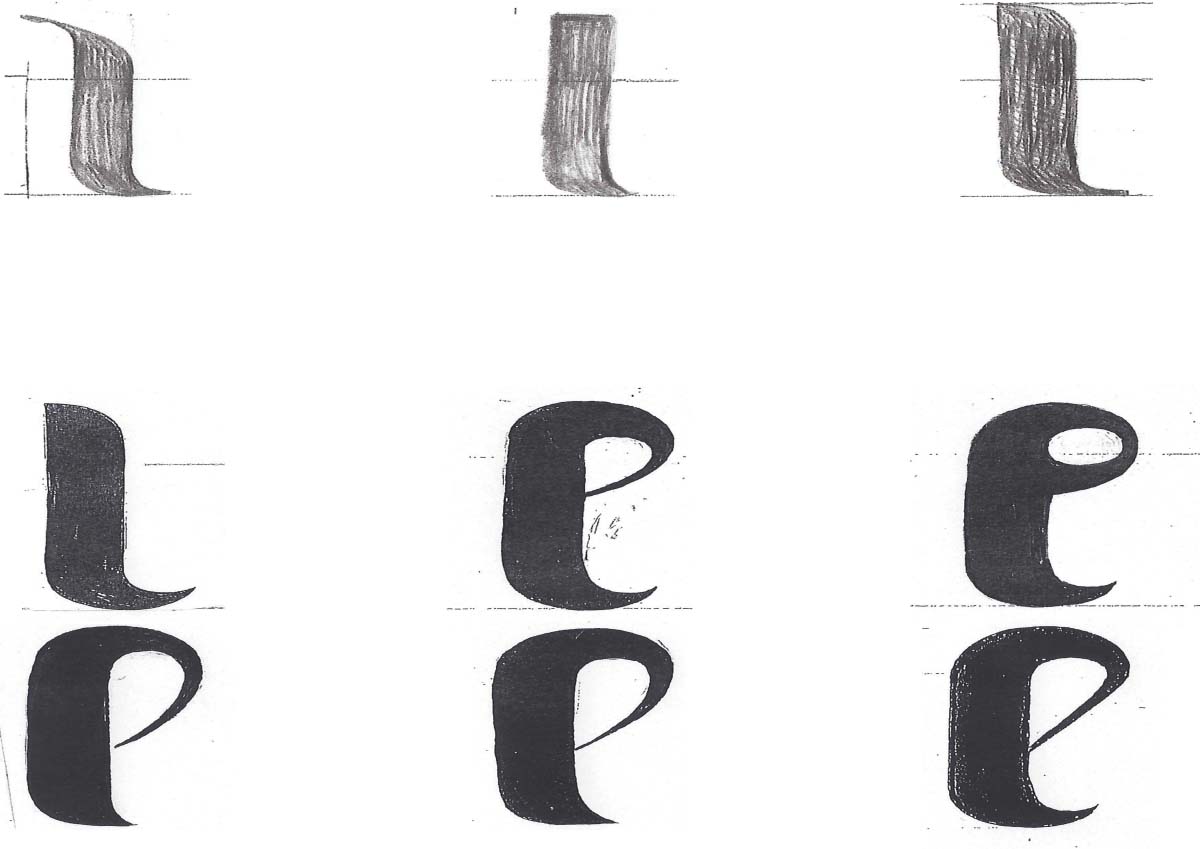 l l l
l e e
e e e